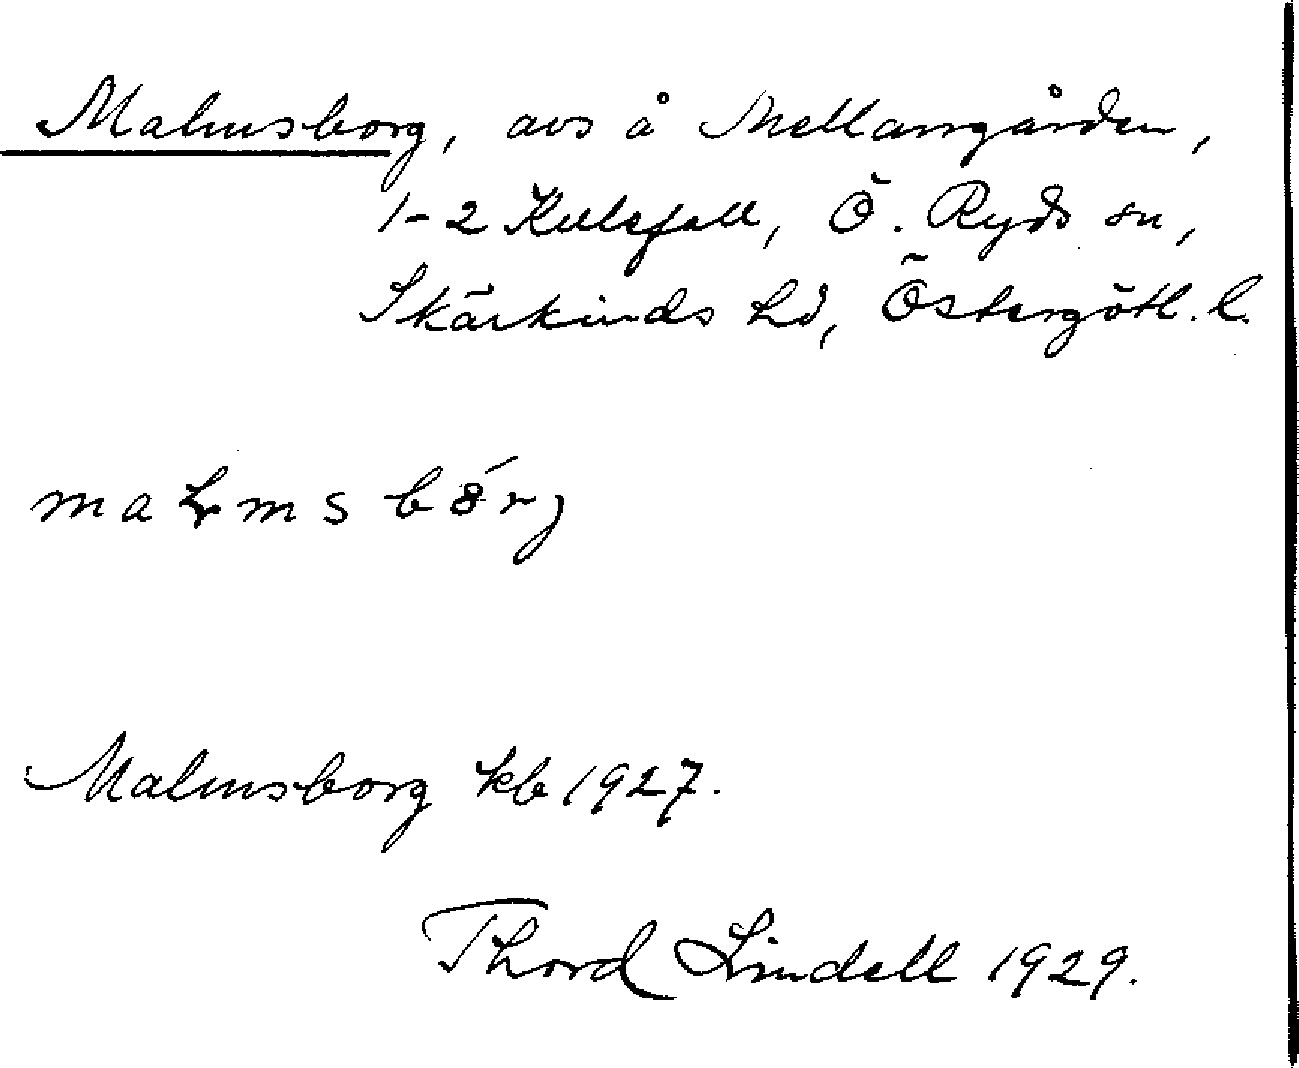 Malmsborg, avs å Mellangården,
1-2 Kullefall, Ö. Ryds sn,
Skärkinds hd, Östergötl. l.
malmsbórj
Malmsborg kb 1927.
Thord Lindell 1929.